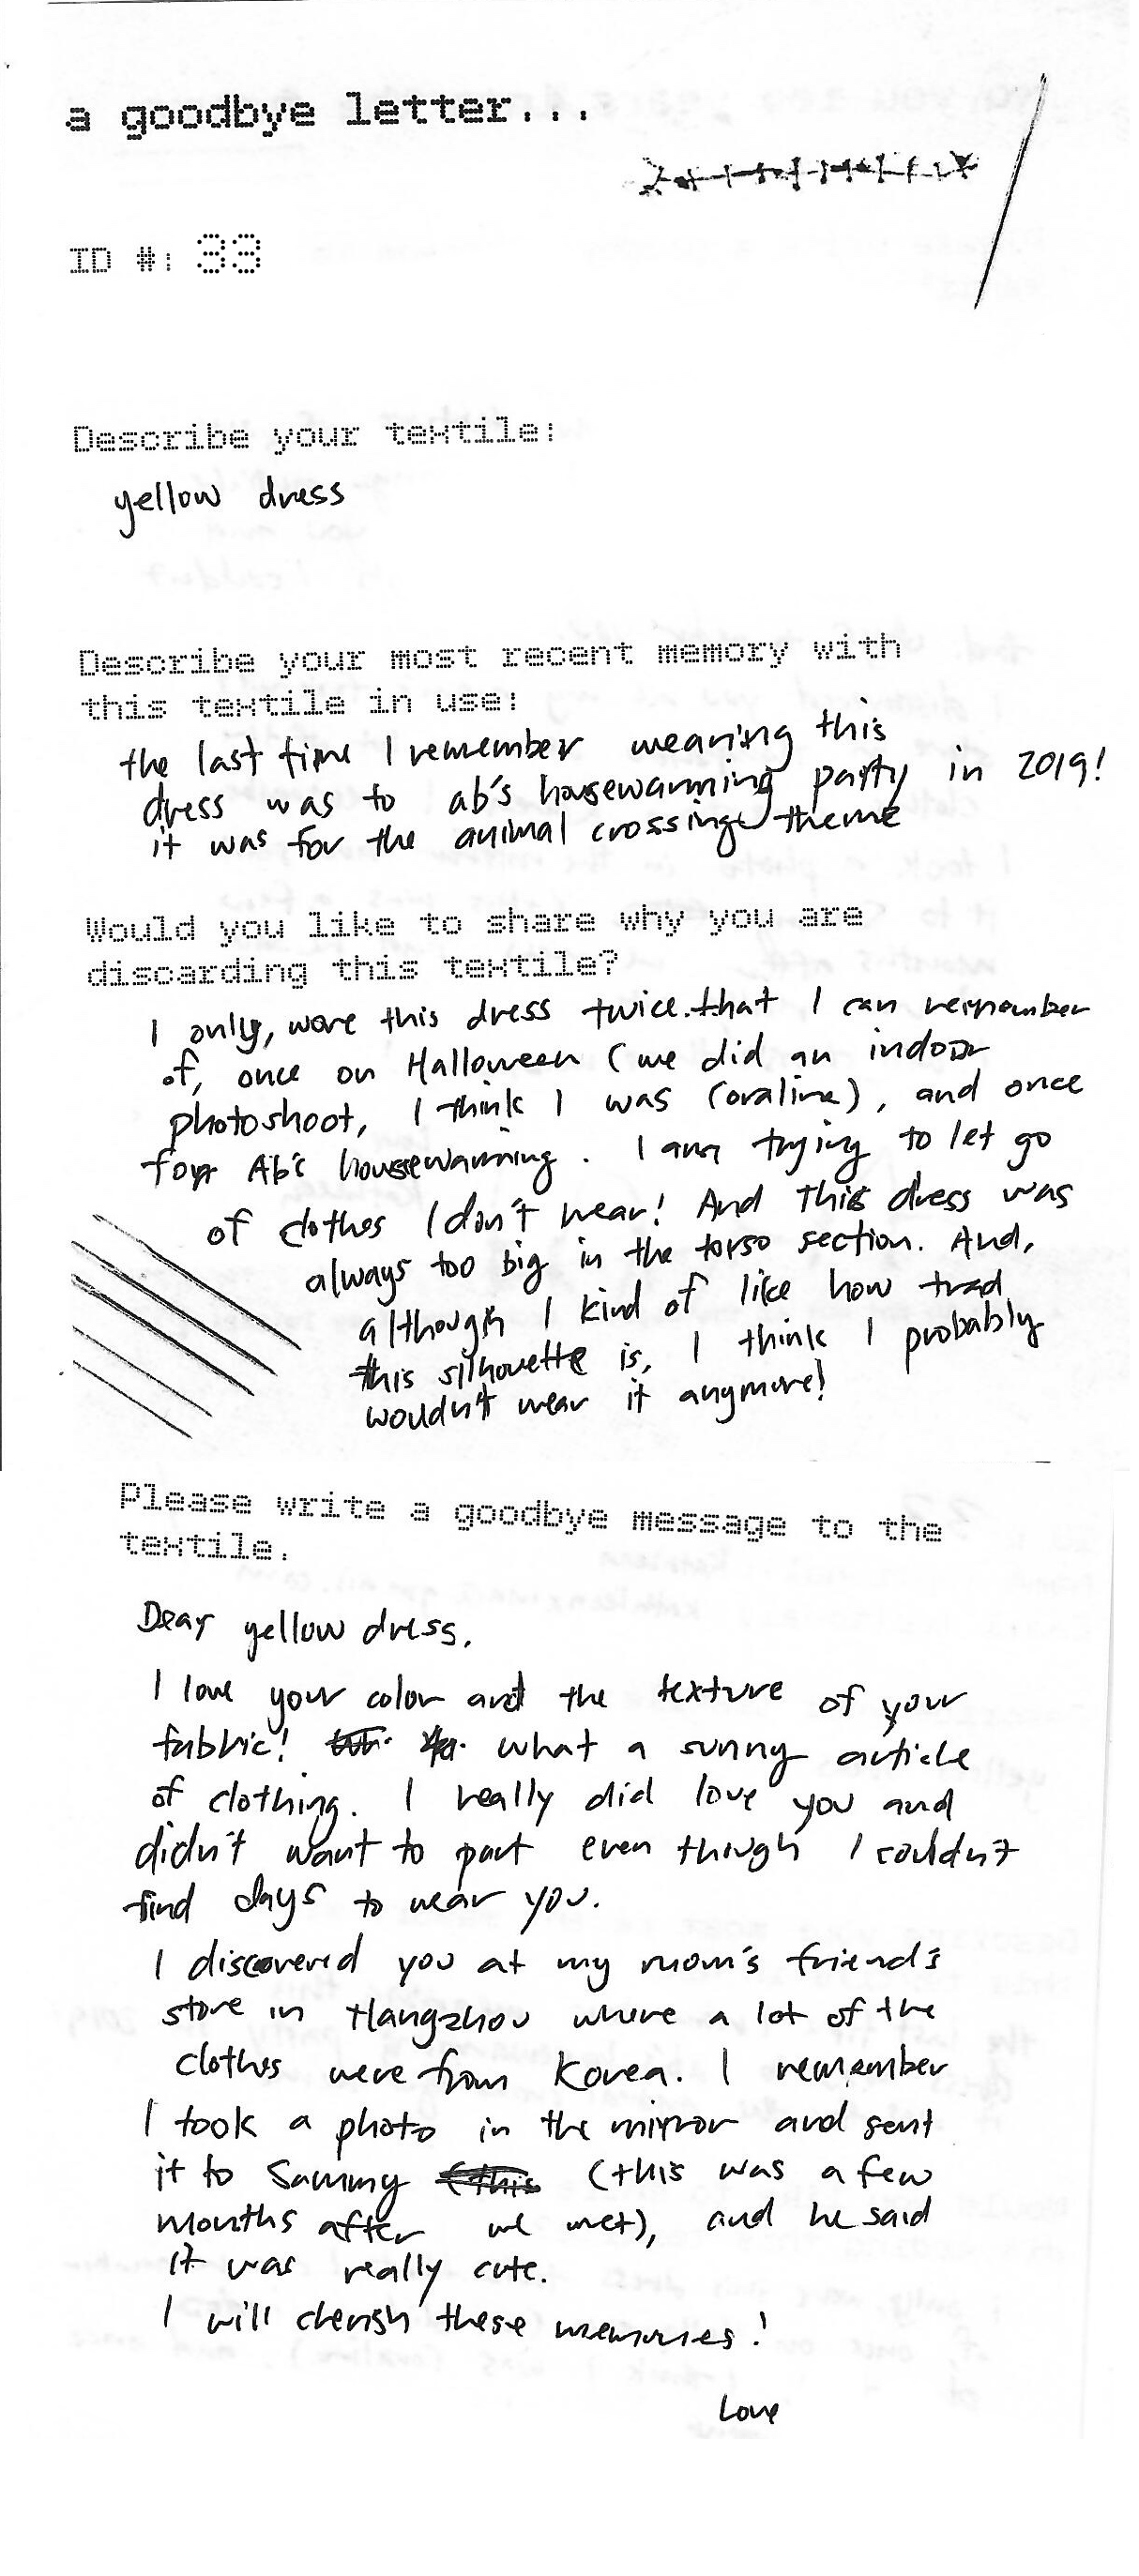 a goodbye letter...
ID #: 33
Describe your textile:
yellow dress
Describe your most recent memory with
this textile in use:
the last time I remember wearing this
dress was to ab's housewarming party in 2019!
it was for the animal crossing theme
Would you like to share why you are
discarding this textile?
I only, wore this dress twice that I can remember
of, once on Halloween (we did an indoor
photoshoot, I think I was Coraline), and once
for Ab's housewarming. I am trying to let go
of clothes I don't wear! And this dress was
always too big in the torso section. And,
although I kind of like how trad
this silhouette is, I think I probably
wouldn't wear it anymore!
Please write a goodbye message to the
textile.
Dear yellow dress,
I love your color and the texture of your
fabric! what a sunny article
of clothing. I really did love you and
didn't want to part even though I couldn't
find days to wear you.
I discovered you at my mom's friend's
store in Hangzhou where a lot of the
clothes were from Korea. I remember
I took a photo in the mirror and sent
it to Sammy (this (this was a few
months after we met), and he said
it was really cute.
I will cherish these memories!
Love